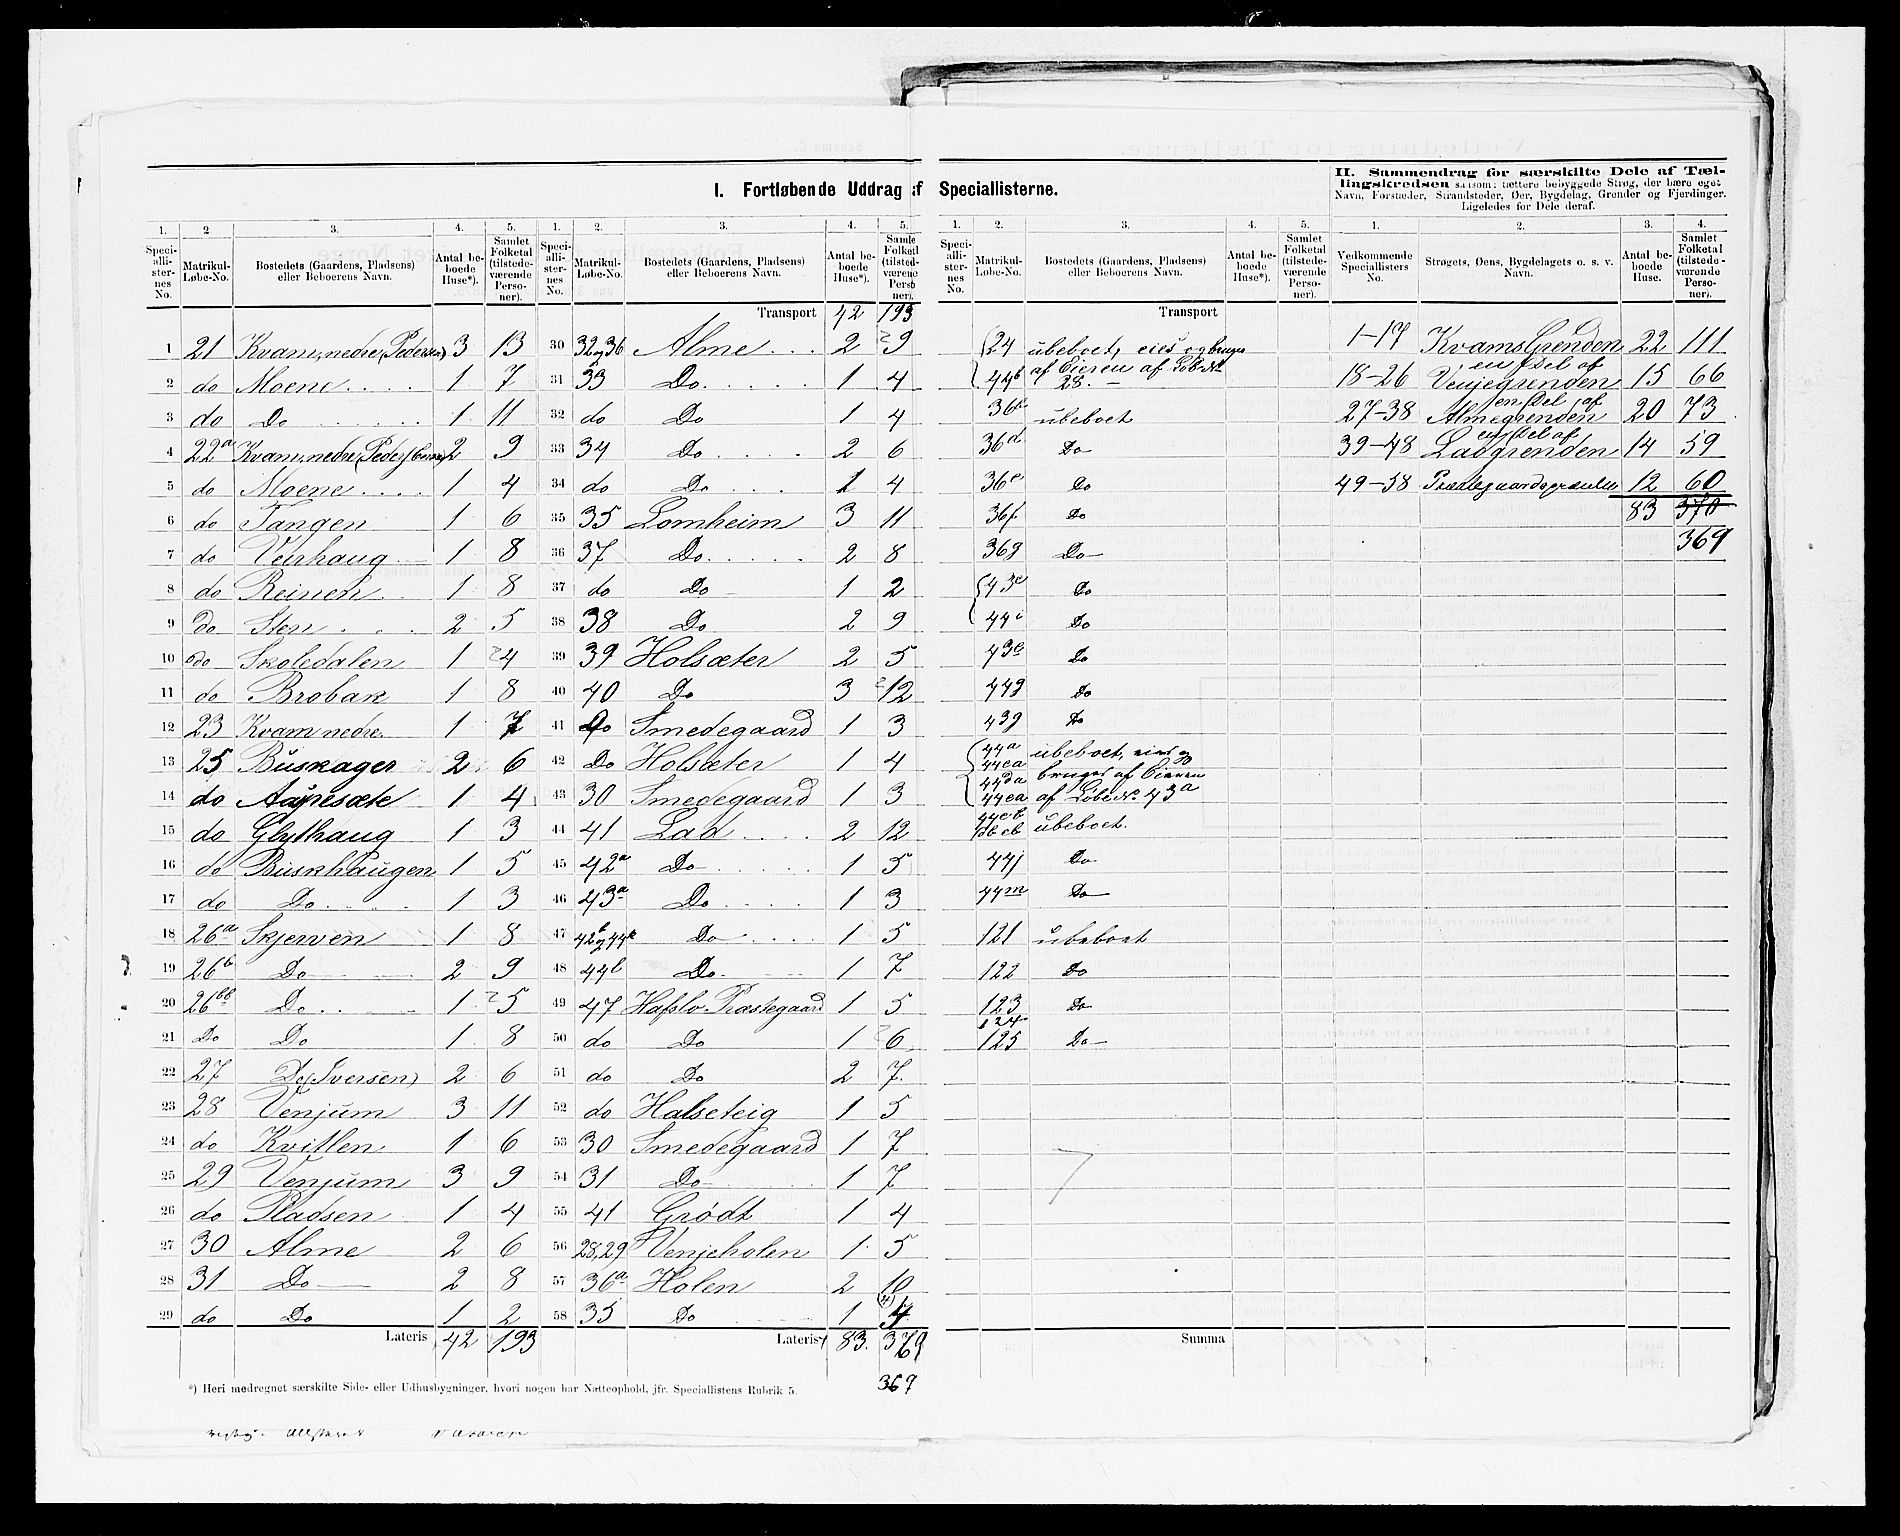 I. Fortløbende Uddrag af Speciallisterne.
II. Sammendrag for særskilte Dele af Tæl-
lingskredsen saasom: tættere bebyggede Strøg, der bære eget
Navn, Forstæder, Strandsteder, Øer, Bygdelag, Grender og Fjerdinger.
Ligeledes for Dele deraf.
1. 2. 3. 4. 5. 1. 2. 3. 4. 5. 1. 2. 3. 4. 5. 1. 2. 3. 4.
Speciallisternes No. Matrikul-Løbe-No. Bostedets (Gaardens, Pladsens) eller Beboerens Navn. Antal beboede Huse*). Samlet Folketal (tilstedeværende Personer).
Speciallisternes No. Matrikul-Løbe-No. Bostedets (Gaardens, Pladsens) eller Beboerens Navn. Antal beboede Huse*). Samlet Folketal (tilstedeværende Personer).
Speciallisternes No. Matrikul-Løbe-No. Bostedets (Gaardens, Pladsens) eller Beboerens Navn. Antal beboede Huse*). Samlet Folketal (tilstedeværende Personer).
Vedkommende Speciallisters No. Strøgets, Øens, Bygdelagets o. s. v. Navn. Antal beboede Huse. Samlet Folketal (tilstedeværende Personer).
1 21 Kvam, nedre, (Pedersen) 3 13
2 do Moene 1 7
3 do Do 1 11
4 22a Kvam, nedre (Peder) 2 9
5 do Moene 1 4
6 do Tangen 1 6
7 do Veirhaug 1 8
8 do Reinen 1 8
9 do Sten 2 5
10 do Skoledalen 1 4
11 do Brobak 1 8
12 23 Kvam nedre 1 7
13 25 Buskager 2 6
14 do 1 4
15 do Glythaug 1 3
16 do Buskhaugen 1 5
17 do Do 1 3
18 26a Skjerven 1 8
19 26b Do 2 9
20 26bb Do 1 5
21 Do Do 1 8
22 27 Do (Iversen) 2 6
23 28 Venjum 3 11
24 do Kvitlen 1 6
25 29 Venjum 3 9
26 do Pladsen 1 4
27 30 Alme 2 6
28 31 Do 2 8
29 do Do 1 2
Lateris 42 193
Transport 42 193
30 32 og 36 Alme 2 9
31 33 Do 1 4
32 do Do 1 4
33 34 Do 2 6
34 do Do 1 4
35 35 Lomheim 3 11
36 37 Do 2 8
37 do Do 1 2
38 38 Do 2 9
39 39 Holsæter 2 5
40 40 Do 3 12
41 do Smedegaard 1 3
42 Do Holsæter 1 4
43 30 Smedegaard 1 3
44 41 Lad 2 12
45 42a Do 1 5
46 43a Do 1 3
47 42b og 44k Do 1 5
48 44l Do 1 7
49 47 Hafslo Præstegaard 1 5
50 do Do 1 6
51 do Do 2 7
52 do Halseteig 1 5
53 30 Smedegaard 1 7
54 31 Do 1 7
55 41 Grødt 1 4
56 28,29 Venjeholen 1 5
57 36a Holen 2 10
58 35 Do 1 (4) 4
Lateris 83 369
369
Transport
24 ubeboet, eies og bruges
44b af Eieren af Løbe No 28
ubeboet
36d Do
36e Do
36f Do
36g Do
43c Do
44i Do
43e Do
44g Do
43g Do
44a ubeboet, eies og
44ca
44da bruges af Eieren
44ea af Løbe No 43a
ubeboet.
44j Do
44m Do
121 ubeboet
122 Do
123 Do
124
125 Do
Summa
1-17 Kvamsgrenden 22 111
18-26 en Del af Venjegrenden 15 66
27-38 en Del af Almegrenden 20 73
39-48 en Del af Ladgrenden 14 59
49-58 12 60
83 370
369
*) Heri medregnet særskilte Side- eller Udhusbygninger, hvori nogen har Natteophold, jfr. Speciallistens Rubrik 5.